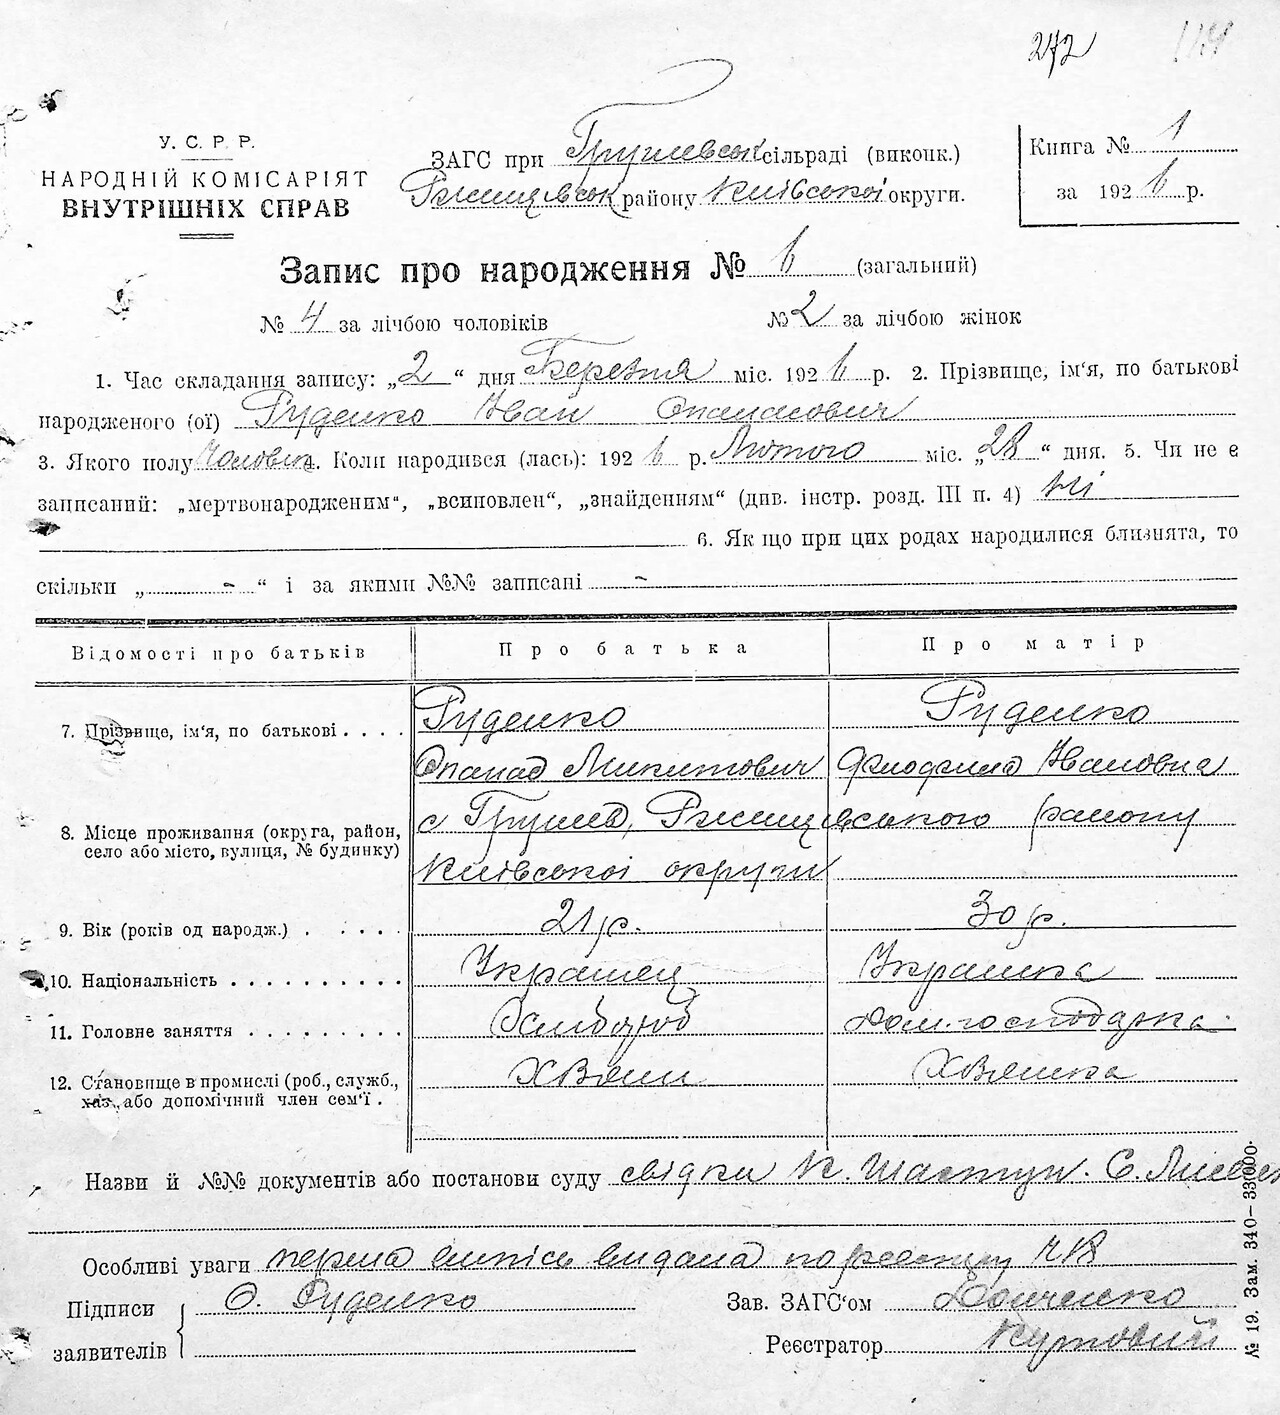 272
У. С. Р. Р.
НАРОДНІЙ КОМІСАРІЯТ
ВНУТРІШНІХ СПРАВ
ЗАГС при Грушевськ сільраді (виконк.)
Ржищівськ району Київської округи.
Книга № 1
за 1926 р.
Запис про народження № 6 (загальний)
№ 4 за лічбою чоловіків № 2 за лічбою жінок
1. Час складання запису: „2“ дня Березня міс. 1926 р. 2. Прізвище, ім'я, по батькові
народженого (ої) Руденко Іван Опанасович
3. Якого полу Чоловіч. 4. Коли народився (лась): 1926 р. Лютого міс. „28“ дня. 5. Чи не є
записаний: „мертвонародженим“, „всиновлен“, „знайденням“ (див. інстр. розд. III п. 4) ні
6. Якщо при цих родах народилися близнята, то
скільки „ - “ і за якими №№ записані -
Відомості про батьків Про батька Про матір
7. Прізвище, ім'я, по батькові . . . . Руденко Руденко
Опанас Микитович Иванівна
8. Місце проживання (округа, район, село або місто, вулиця, № будинку) с Грушів, Ржищівського району
Київської округи
9. Вік (років од народж.) . . . . . 21 р. 30 р.
10. Національність . . . . . . . . . . Українец Українка
11. Головне заняття . . . . . . . . . Хлібороб Дом. господарка
12. Становище в промислі (роб., служб., хаз., або допомічний член сем'ї . Хвяин Хвяйка
Назви й №№ документів або постанови суду свідки К. Шастун. С.
Особливі уваги перша випісь видана по реестру № 18
Підписи заявителів О. Руденко
Зав. ЗАГС'ом
Реєстратор Кутовий
№ 19. Зам. 340—33000.